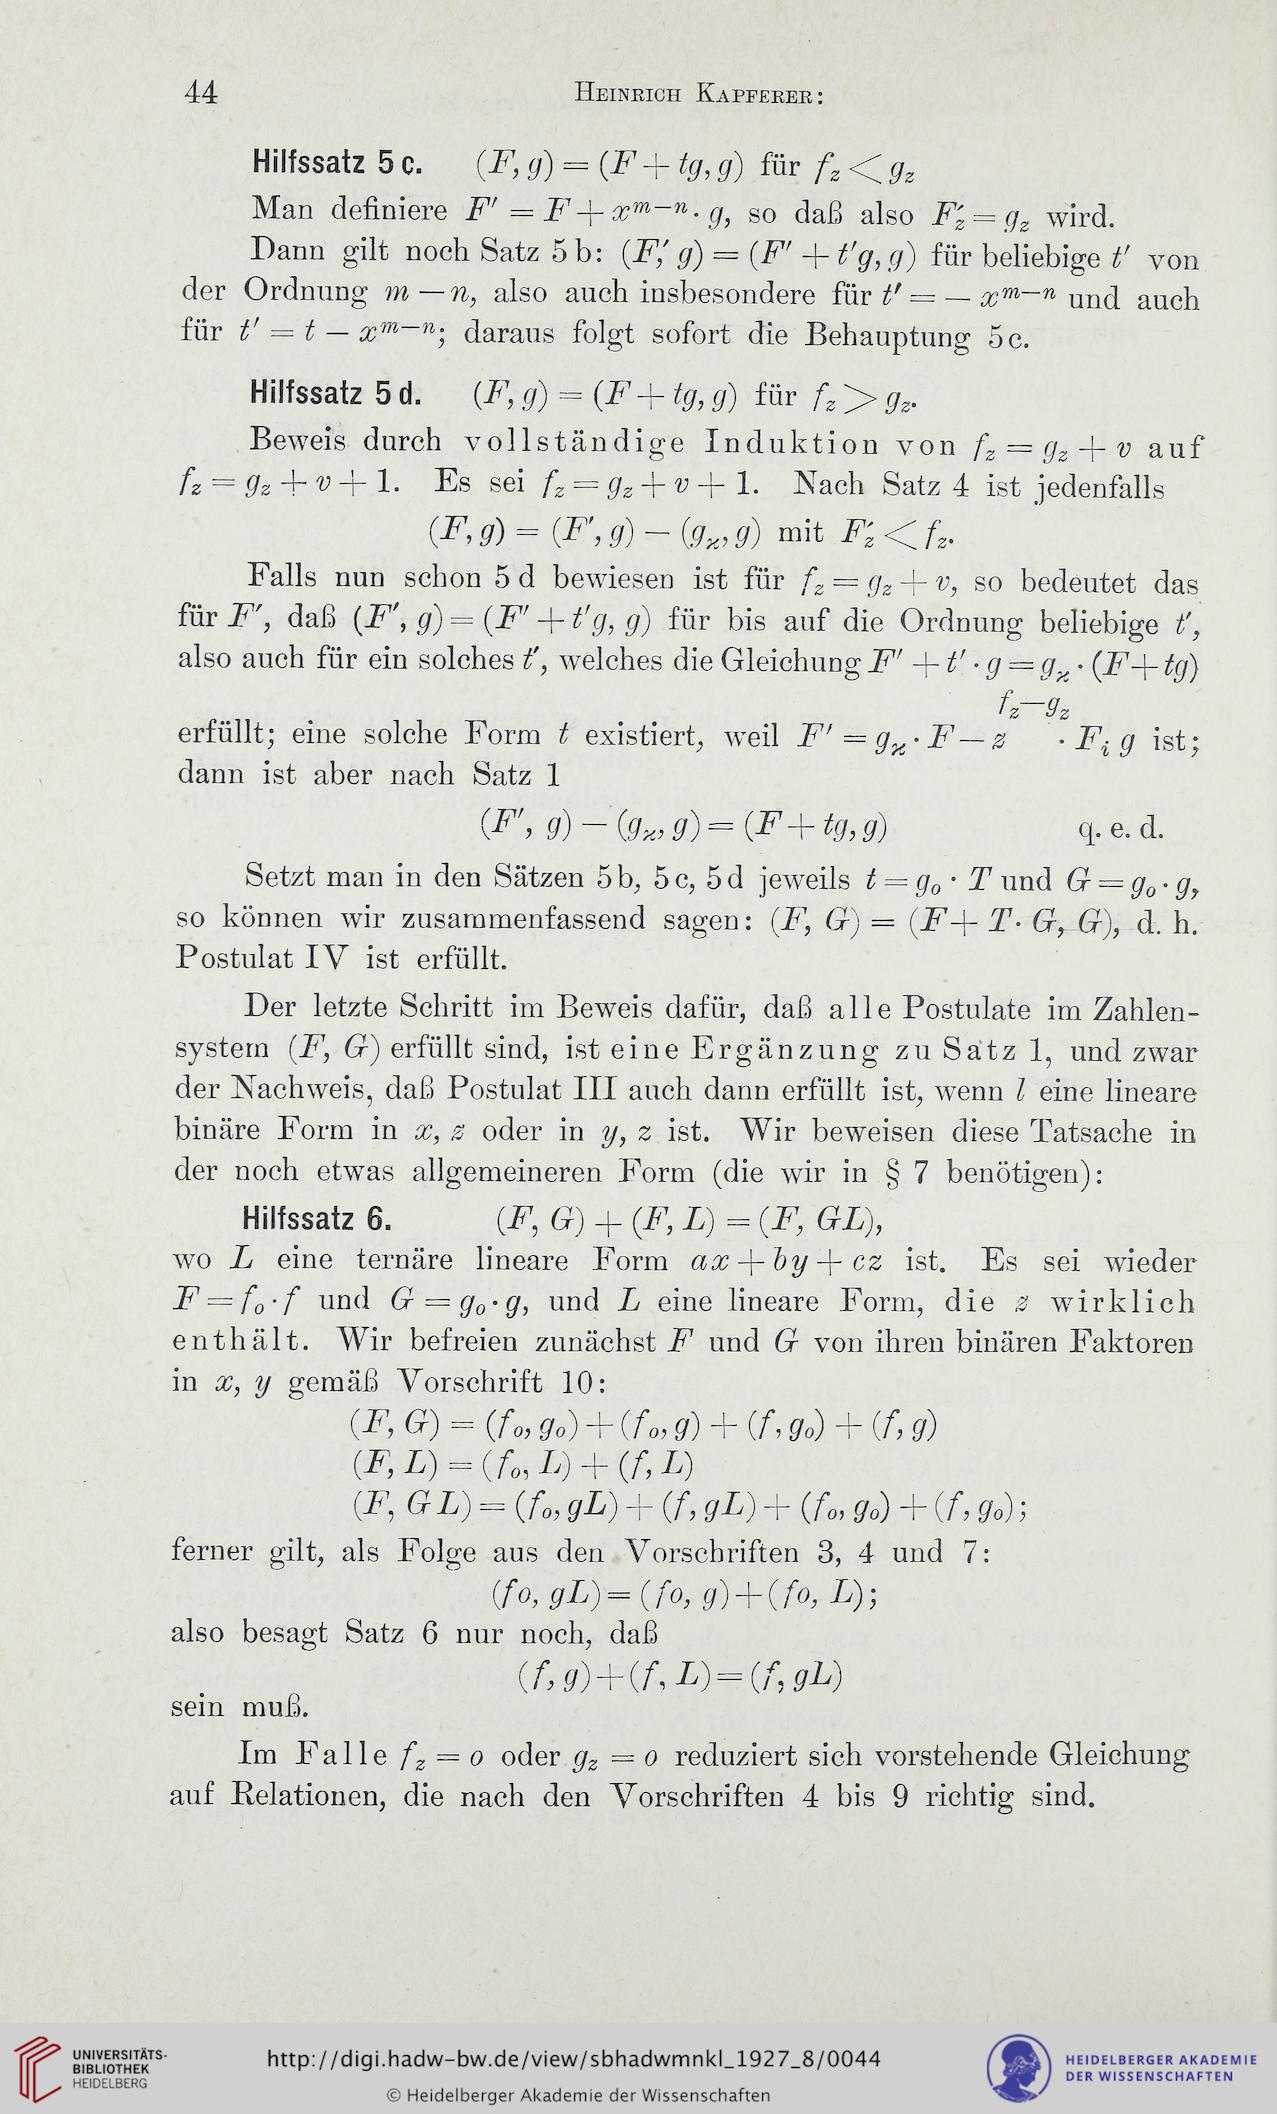 44 Heinrich Kapferer:
Hilfssatz 5 c. (F, g) = (F + tg, g) für f_z < g_z
Man definiere F′ = F + x^{m—n} · g, so daß also F′_z = g_z wird.
Dann gilt noch Satz 5 b: (F′, g) = (F′ + t′g, g) für beliebige t′ von
der Ordnung m — n, also auch insbesondere für t′ = — x^{m—n} und auch
für t′ = t — x^{m—n}; daraus folgt sofort die Behauptung 5 c.
Hilfssatz 5 d. (F, g) = (F + tg, g) für f_z > g_z.
Beweis durch vollständige Induktion von f_z = g_z + v auf
f_z = g_z + v + 1. Es sei f_z = g_z + v + 1. Nach Satz 4 ist jedenfalls
(F, g) = (F′, g) — (g_ϰ, g) mit F′_z < f_z.
Falls nun schon 5 d bewiesen ist für f_z = g_z + v, so bedeutet das
für F′, daß (F′, g) = (F′ + t′g, g) für bis auf die Ordnung beliebige t′,
also auch für ein solches t′, welches die Gleichung F′ + t′ · g = g_ϰ · (F + tg)
erfüllt; eine solche Form t existiert, weil F′ = g_ϰ · F — z^{f_z—g_z} · F_i g ist;
dann ist aber nach Satz 1
(F′, g) — (g_ϰ, g) = (F + tg, g) q. e. d.
Setzt man in den Sätzen 5 b, 5 c, 5 d jeweils t = g_o · T und G = g_o · g,
so können wir zusammenfassend sagen: (F, G) = (F + T · G, G), d. h.
Postulat IV ist erfüllt.
Der letzte Schritt im Beweis dafür, daß alle Postulate im Zahlen-
system (F, G) erfüllt sind, ist eine Ergänzung zu Satz 1, und zwar
der Nachweis, daß Postulat III auch dann erfüllt ist, wenn l eine lineare
binäre Form in x, z oder in y, z ist. Wir beweisen diese Tatsache in
der noch etwas allgemeineren Form (die wir in § 7 benötigen):
Hilfssatz 6. (F, G) + (F, L) = (F, GL),
wo L eine ternäre lineare Form ax + by + cz ist. Es sei wieder
F = f_o · f und G = g_o · g, und L eine lineare Form, die z wirklich
enthält. Wir befreien zunächst F und G von ihren binären Faktoren
in x, y gemäß Vorschrift 10:
(F, G) = (f_o, g_o) + (f_o, g) + (f, g_o) + (f, g)
(F, L) = (f_o, L) + (f, L)
(F, GL) = (f_o, gL) + (f, gL) + (f_o, g_o) + (f, g_o);
ferner gilt, als Folge aus den Vorschriften 3, 4 und 7:
(fo, gL) = (fo, g) + (fo, L);
also besagt Satz 6 nur noch, daß
(f, g) + (f, L) = (f, gL)
sein muß.
Im Falle f_z = o oder g_z = o reduziert sich vorstehende Gleichung
auf Relationen, die nach den Vorschriften 4 bis 9 richtig sind.
UNIVERSITÄTS-
BIBLIOTHEK
HEIDELBERG
http://digi.hadw-bw.de/view/sbhadwmnkl_1927_8/0044
© Heidelberger Akademie der Wissenschaften
HEIDELBERGER AKADEMIE
DER WISSENSCHAFTEN